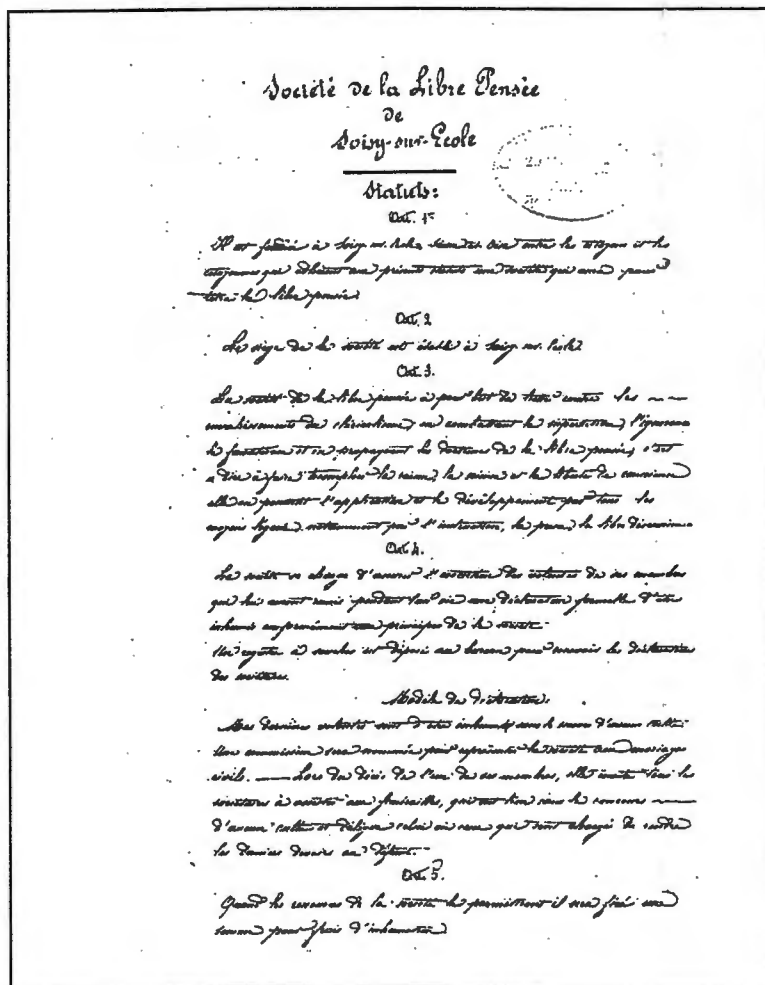 Société de la Libre Pensée
de
Soisy-sur-Ecole
Statuts:
Art. 1er
Il est fondé à Soisy-sur-Ecole Seine et Oise entre les citoyens et les
citoyennes qui adhèrent aux présents statuts une société qui aura pour
titre la libre pensée.
Art. 2
Le siège de la société est établi à Soisy-sur-Ecole
Art. 3.
La société de la libre pensée a pour but de lutter contre les
envahissements du cléricalisme, en combattant la superstition, l'ignorance
le fanatisme et en propageant les doctrines de la libre pensée, c'est
à dire à faire triompher la raison, la science et la liberté de conscience
elle en poursuit l'application et le développement par tous les
moyens légaux, notamment par l'instruction, la presse, la libre discussion.
Art. 4.
La société se charge d'assurer l'exécution des volontés de ses membres
qui lui auront remis pendant leur vie une déclaration formelle d'être
inhumés conformément aux principes de la société.
Un registre à souches est déposé au bureau pour recevoir les déclarations
des sociétaires.
Modèle de déclaration.
Mes dernières volontés sont d'être inhumé sans le secours d'aucun culte.
Une commission sera nommée pour représenter la société aux mariages
civils. — Lors du décès de l'un de ses membres, elle invite tous les
sociétaires à assister aux funérailles, qui ont lieu sans le concours
d'aucun culte et désigne celui ou ceux qui sont chargés de rendre
les derniers devoirs au défunt.
Art. 5.
Quand les ressources de la société le permettront il sera fixé une
somme pour frais d'inhumation